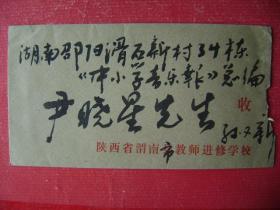 湖南邵阳滑石新村34栋
《中小学音乐报》总编
尹晓星先生 收
孙又新
陕西省渭南市教师进修学校